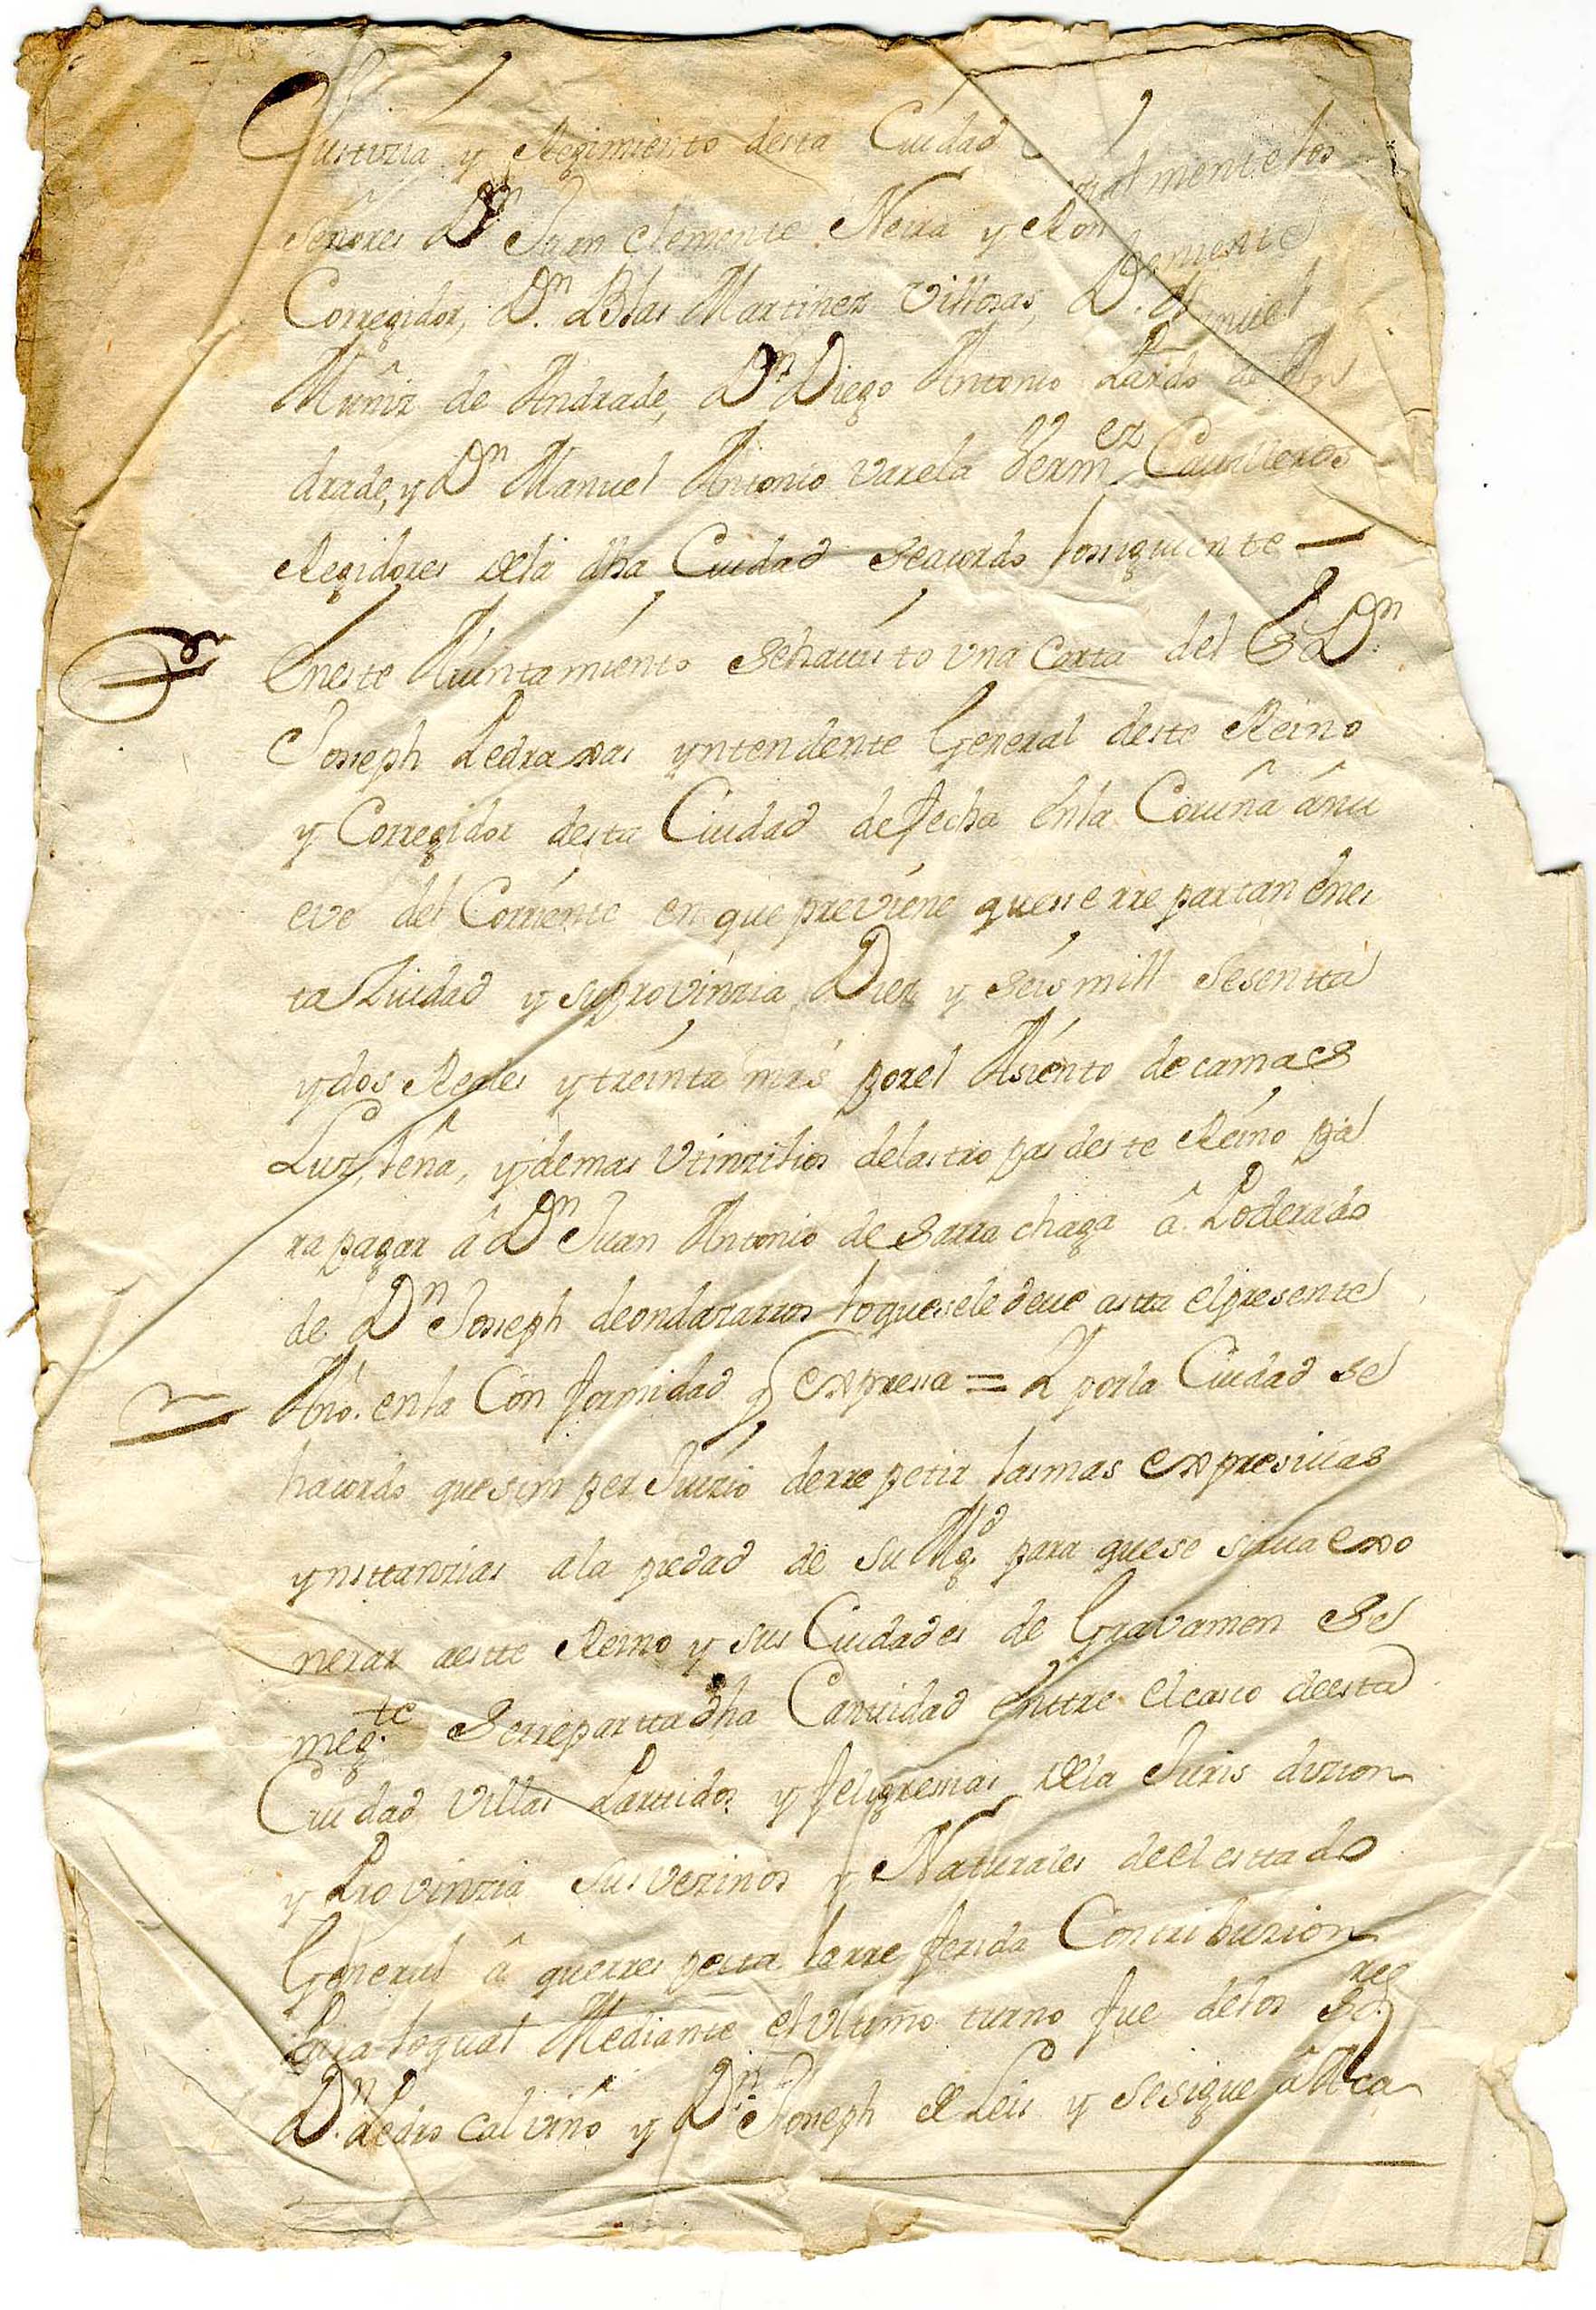 Justizia y Regimiento desta Ciudad
señores Dn Juan Clemente Neira y
Corregidor, Dn. Blas Martinez Villozas, D. Manuel
Muñiz de Andrade, Dn Diego Antonio Pardo de An
drade, y Dn Manuel Antonio Varela Vermez Cavalleros
Regidores de la dha Ciudad se acordo lo siguiente
En este Aiuntamiento se ha visto una carta del Dn.
Joseph Pedraxas yntendente General deste Reino
y Corregidor desta Ciudad de fecha en la Coruña â nu
eve del Corriente en que previene que se rrepartan enes
ta Ziudad y su provinzia Diez y seis mill sesentta
y dos Reales y treinta mrs por el Asiento de camas
Luz, leña, y demas Utinzilios de las tropas deste Reino pa
ra pagar â Dn Juan Antonio de Barrachaga â Poderado
de Dn Joseph de ondazarros lo que se le deve astta el presente
Año. en la Conformidad q expresa = Y por la Ciudad se
ha cordo que sin per Juizio de rrepetir las mas expresivas
ynsttanzias a la piedad de su Mgd. para que se sirva exo
nerar a estte Reino y sus Ciudades de Gravamen Se
megte. Se rrepartta dha Canttidad enttre el casco de esta
Ciudad Villas Parttidos y feligresias de la Juris dizion
y Provinzia sus vezinos y Naturales de el esttado
General â que rrespecta la rre ferida Contribuzion
Para lo qual Mediante el Ultimo turno fue de los Sores
Dn. Pedro Calviño y Dn. Joseph de Leis y se sigue â